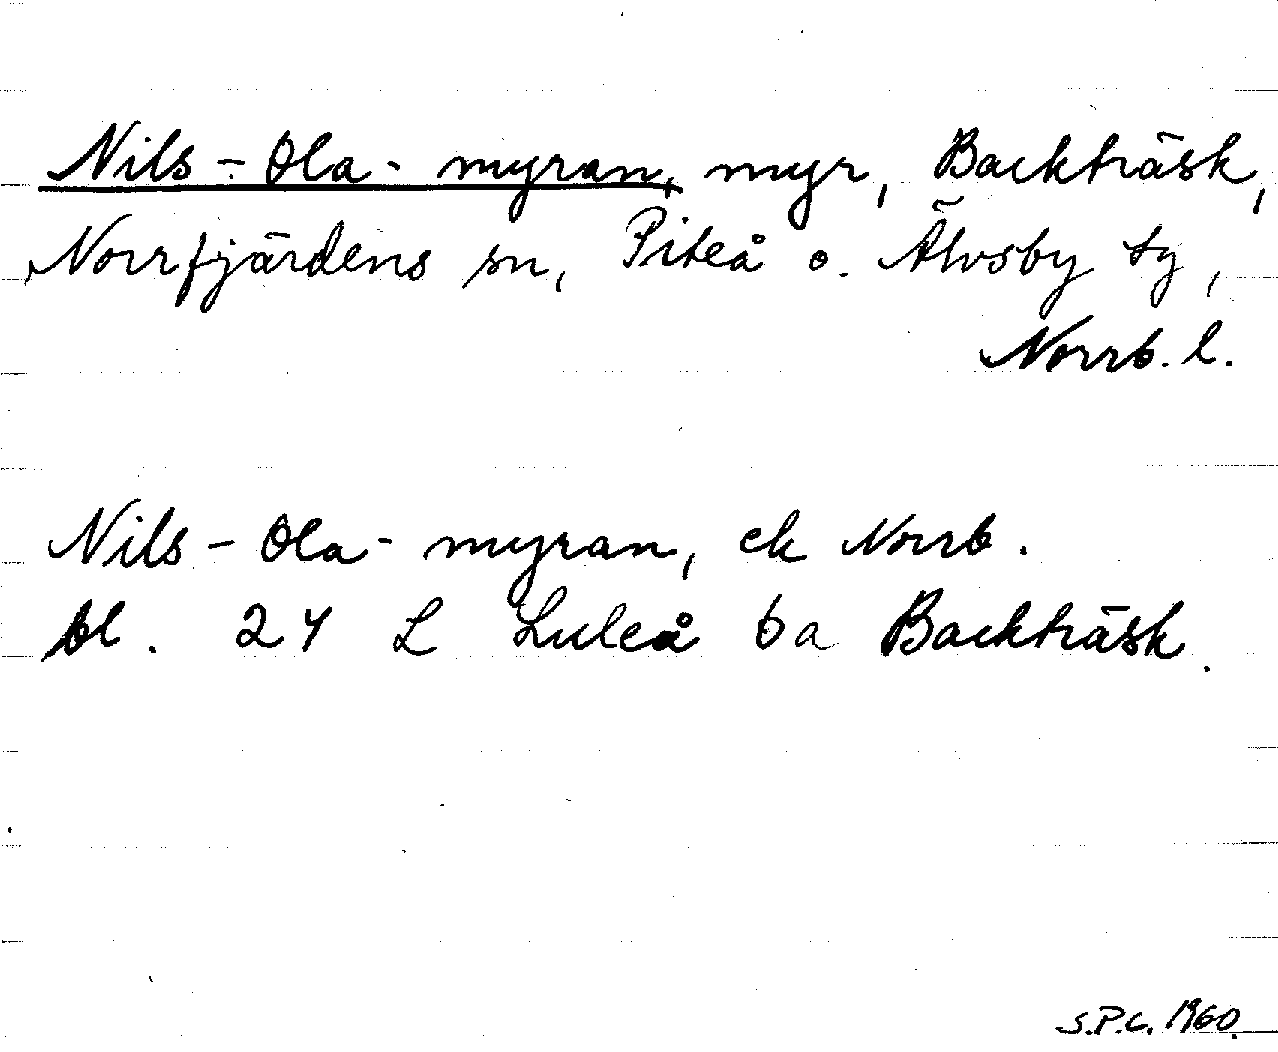 Nils-Ola-myran, myr, Backträsk,
Norrfjärdens sn, Piteå o. Älvsby tg,
Norrb. l.
Nils-Ola-myran, ek Norrb.
bl. 24 L Luleå 6a Backträsk.
S.P.C. 1960